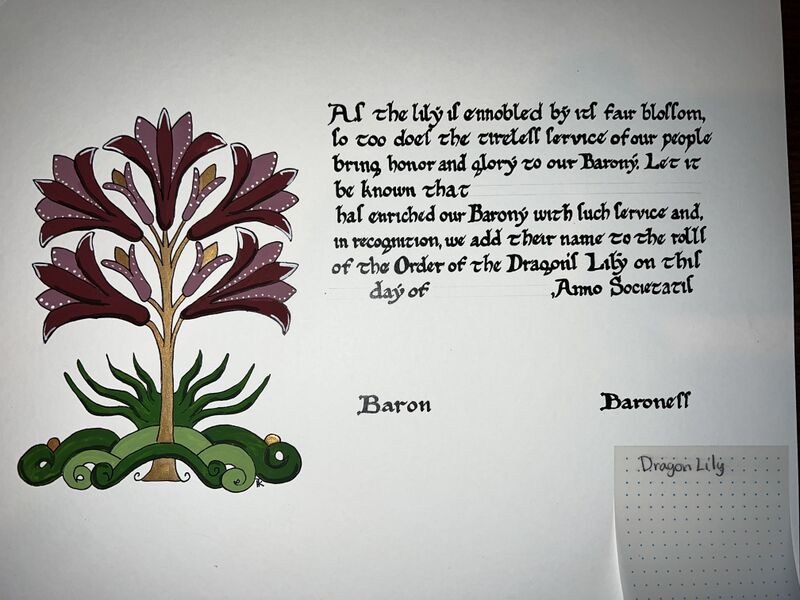 As the lily is ennobled by its fair blossom,
so too does the tireless service of our people
bring honor and glory to our Barony. Let it
be known that
has enriched our Barony with such service and,
in recognition, we add their name to the rolls
of the Order of the Dragon's Lily on this
day of , Anno Societatis
Baron Baroness
Dragon Lily